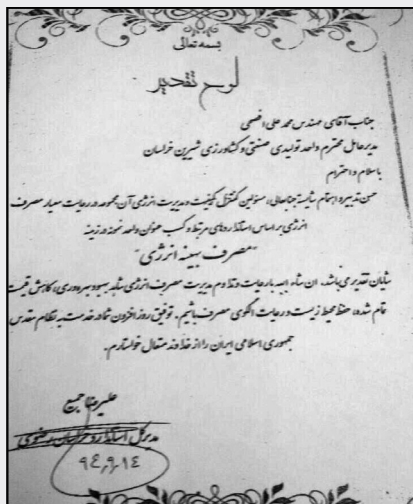 بسمه تعالی
لوح تقدیر
جناب آقای مهندس محمد علی افصحی
مدیرعامل محترم واحد تولیدی صنعتی و کشاورزی شیرین خراسان
با سلام و احترام
حسن تدبیر و اهتمام شایسته جنابعالی، مسئولین کنترل کیفیت و مدیریت انرژی آن مجموعه در رعایت معیار مصرف
انرژی بر اساس استانداردهای مرتبط و کسب عنوان واحد نمونه در زمینه
"مصرف بهینه انرژی"
شایان تقدیر می باشد. ان شاء الله با رعایت و تداوم مدیریت مصرف انرژی شاهد بهبود بهره وری، کاهش قیمت
تمام شده، حفظ محیط زیست و رعایت الگوی مصرف باشیم. توفیق روز افزون شما در خدمت به نظام مقدس
جمهوری اسلامی ایران را از خداوند متعال خواستارم.
علیرضا جمیع
مدیرکل استاندارد خراسان رضوی
۹۴,۹,۱۴